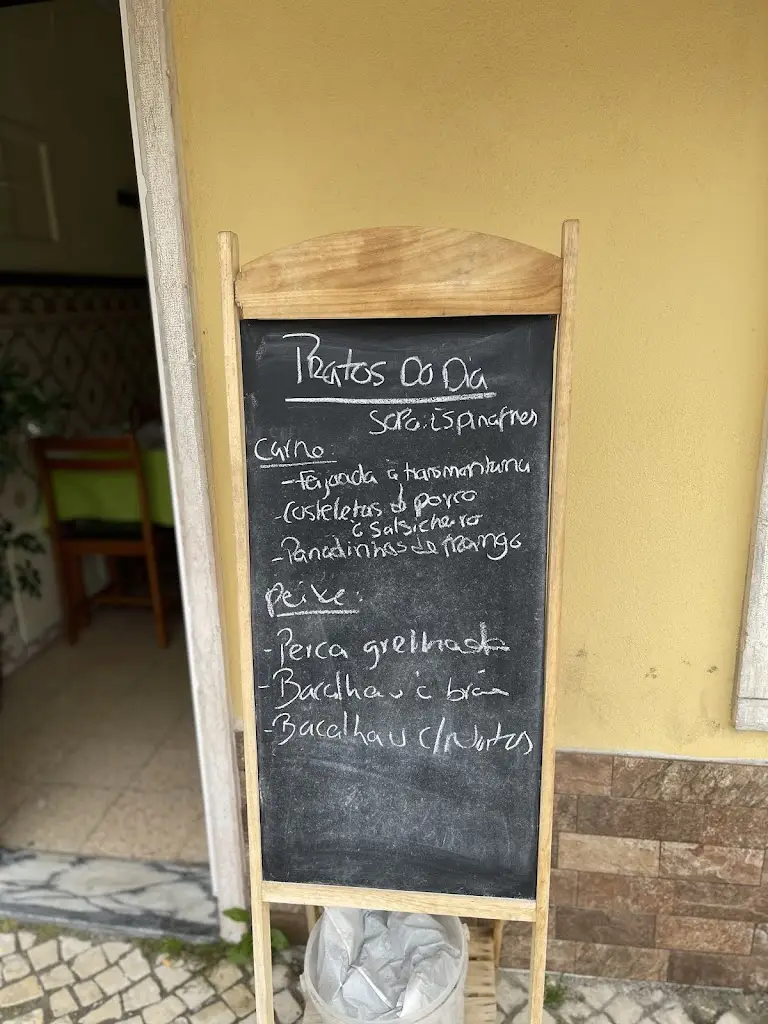 Pratos Do Dia
Sopa: Espinafres
Carne:
- Feijoada à transmontana
- Costeletas de porco
à salsicheiro
- Panadinhas de frango
Peixe:
- Perca grelhada
- Bacalhau à brás
- Bacalhau c/natas